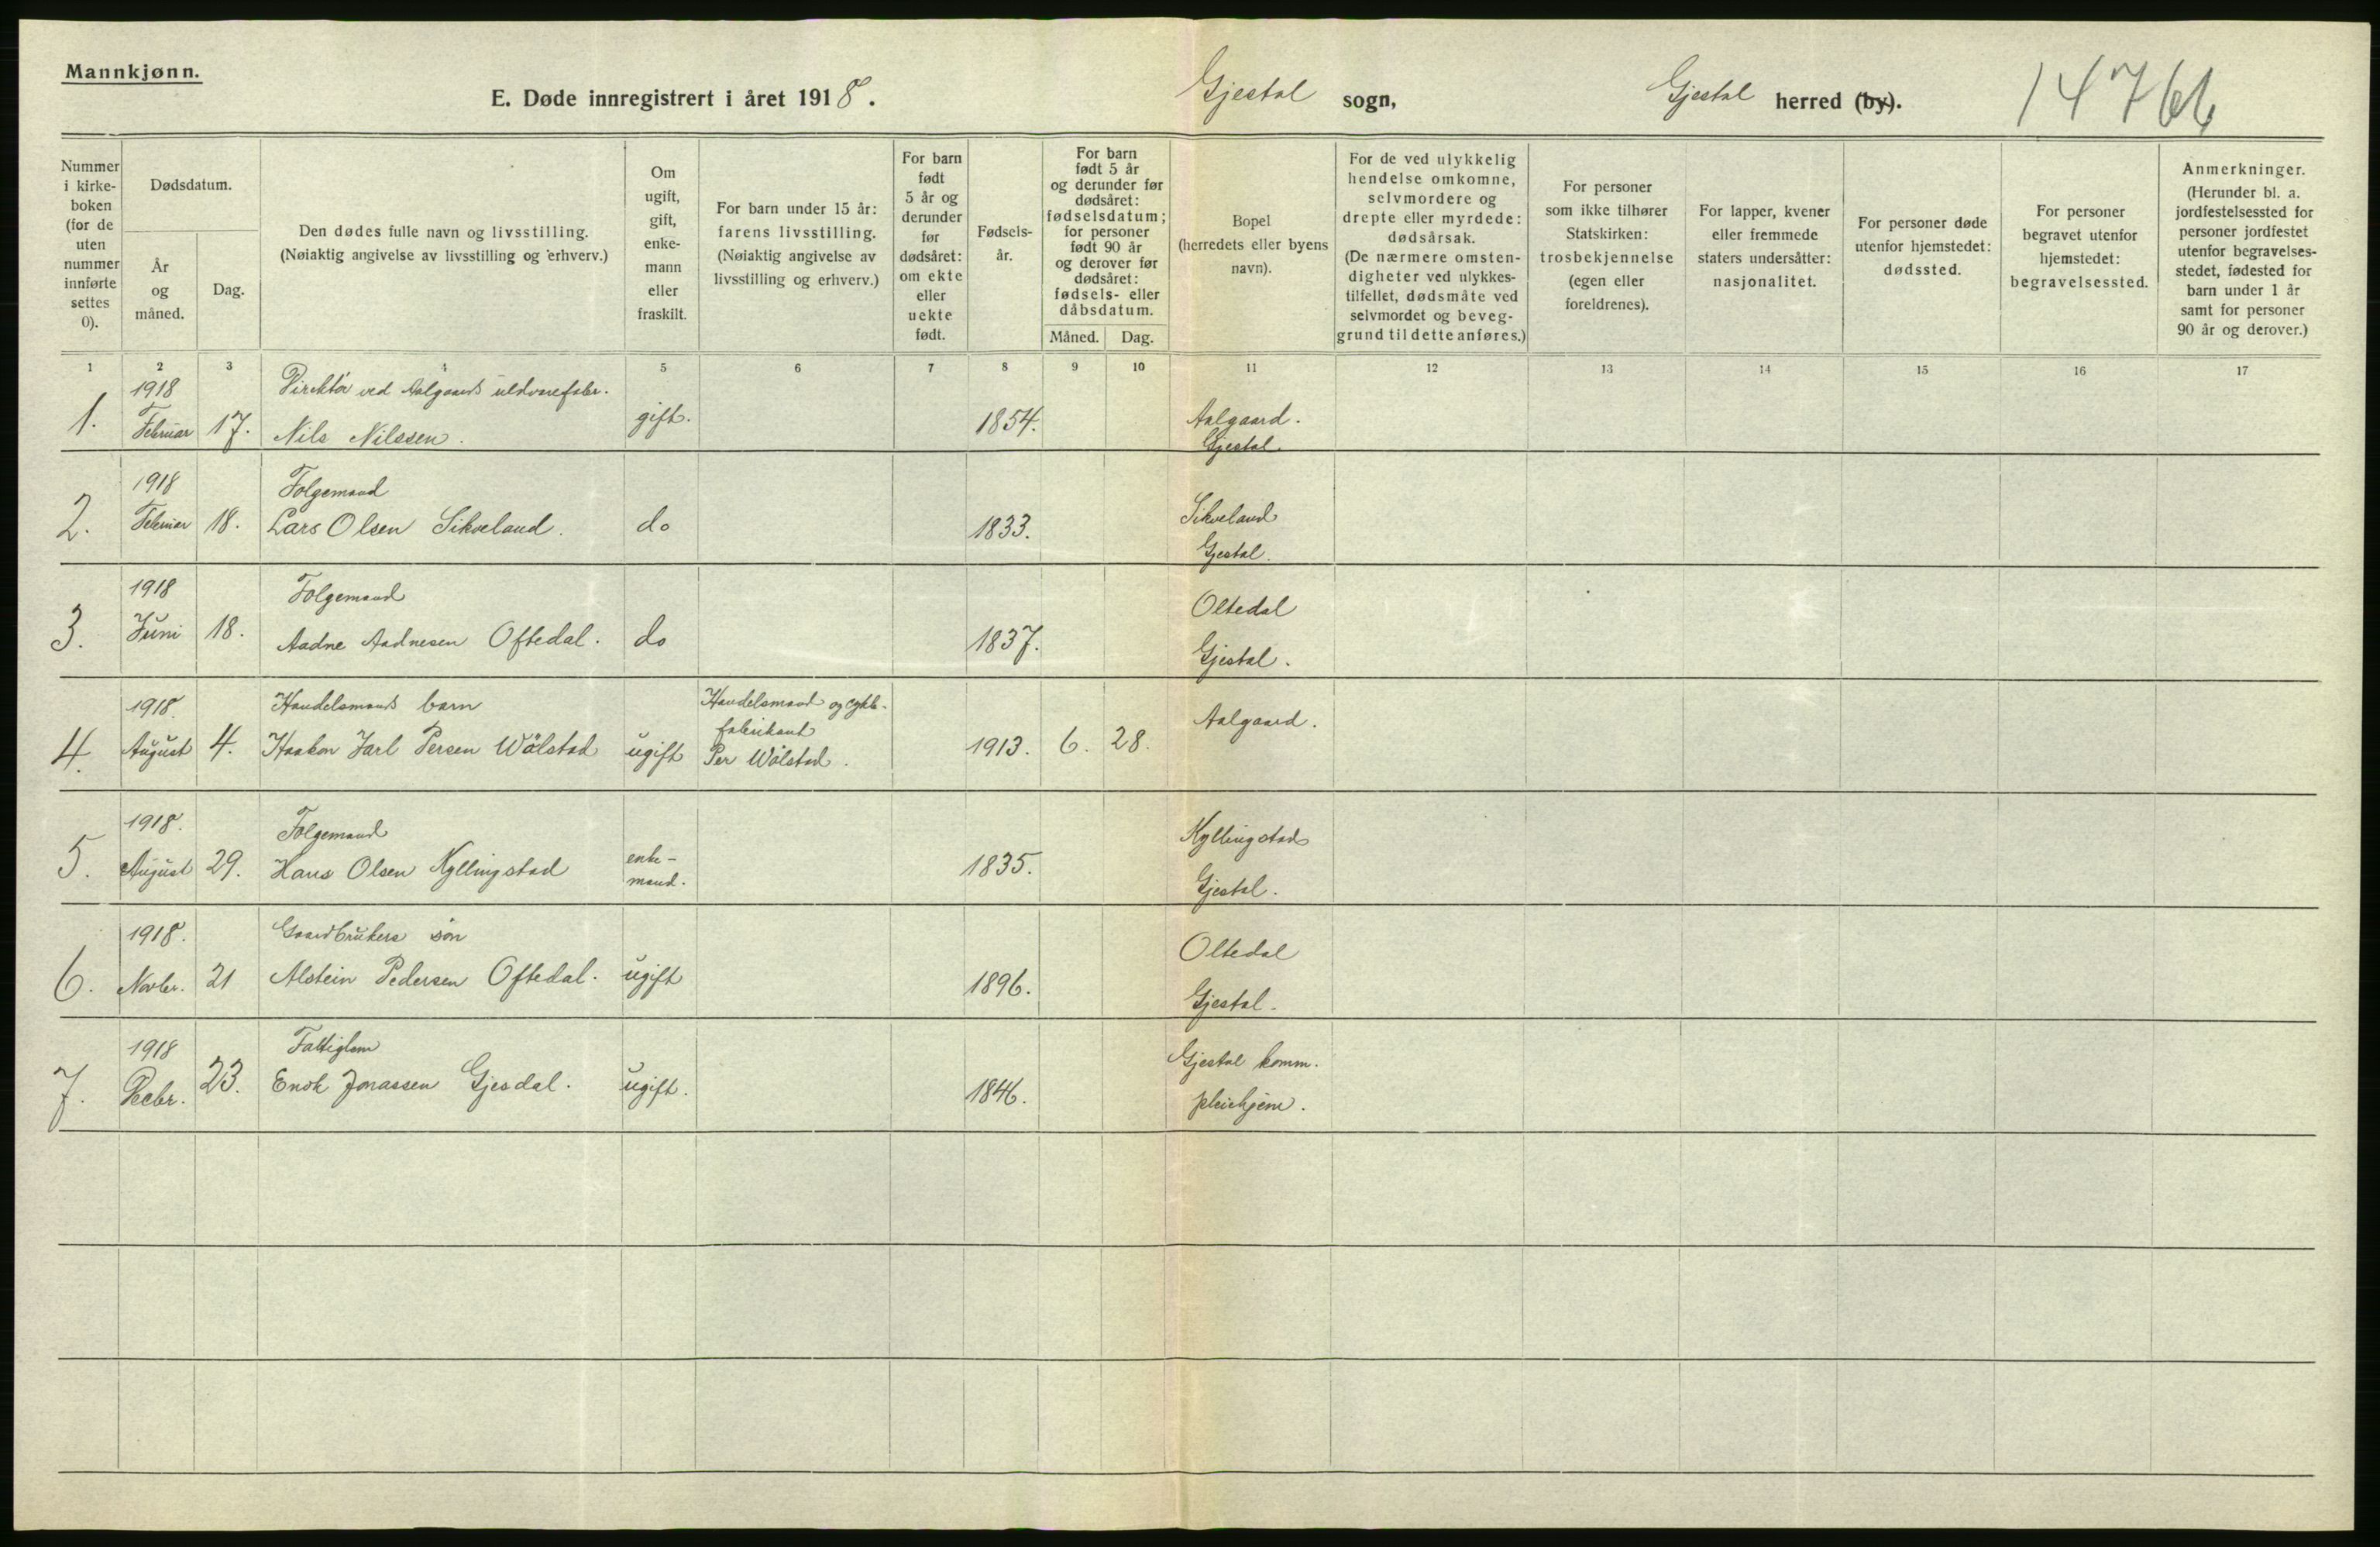 Mannkjønn.
E. Døde innregistrert i året 1918.
Gjestal sogn,
Gjestal herred (by).
14766
Nummer i kirke-boken (for de uten nummer innførte settes 0).
Dødsdatum.
År og måned.
Dag.
Den dødes fulle navn og livsstilling.
(Nøiaktig angivelse av livsstilling og erhverv.)
Om ugift, gift, enke-mann eller fraskilt.
For barn under 15 år: farens livsstilling.
(Nøiaktig angivelse av livsstilling og erhverv.)
For barn født 5 år og derunder før dødsåret: om ekte eller uekte født.
Fødsels-år.
For barn født 5 år og derunder før dødsåret: fødselsdatum; for personer født 90 år og derover før dødsåret: fødsels- eller dåbsdatum.
Måned.
Dag.
Bopel
(herredets eller byens navn).
For de ved ulykkelig hendelse omkomne, selvmordere og drepte eller myrdede: dødsårsak.
(De nærmere omsten-digheter ved ulykkes-tilfellet, dødsmåte ved selvmordet og beveg-grund til dette anføres.)
For personer som ikke tilhører Statskirken: trosbekjennelse (egen eller foreldrenes).
For lapper, kvener eller fremmede staters undersåtter: nasjonalitet.
For personer døde utenfor hjemstedet: dødssted.
For personer begravet utenfor hjemstedet: begravelsessted.
Anmerkninger.
(Herunder bl. a. jordfestelsessted for personer jordfestet utenfor begravelses-stedet, fødested for barn under 1 år samt for personer 90 år og derover.)
1 2 3 4 5 6 7 8 9 10 11 12 13 14 15 16 17
1918 Direktør ved Aalgaards uldvarefabr.
1. Februar 17. Nils Nilssen. gift. 1854. Aalgaard.
Gjestal.
1918 Folgemand
2. Februar 18. Lars Olsen Sikveland. do 1833. Sikveland
Gjestal.
1918 Folgemand Oltedal
3. Juni 18. Aadne Aadnesen Oftedal. do 1837.
Gjestal.
1918. Handelsmands barn Handelsmand og cykle-
fabrikant
4. August 4. Haakon Jarl Persen Wølstad ugift Per Wølstad. 1913. 6. 28. Aalgaard.
1918. Folgemand Kyllingstad
5. August 29. Hans Olsen Kyllingstad enke-
mand. 1835.
Gjestal.
1918. Gaardbrukers søn Oltedal
6. Novbr. 21 Alstein Pedersen Oftedal. ugift 1896.
Gjestal.
1918 Fattiglem Gjestal komm.
7. Decbr. 23. Enok Jonassen Gjesdal. ugift. 1846.
pleiehjem.